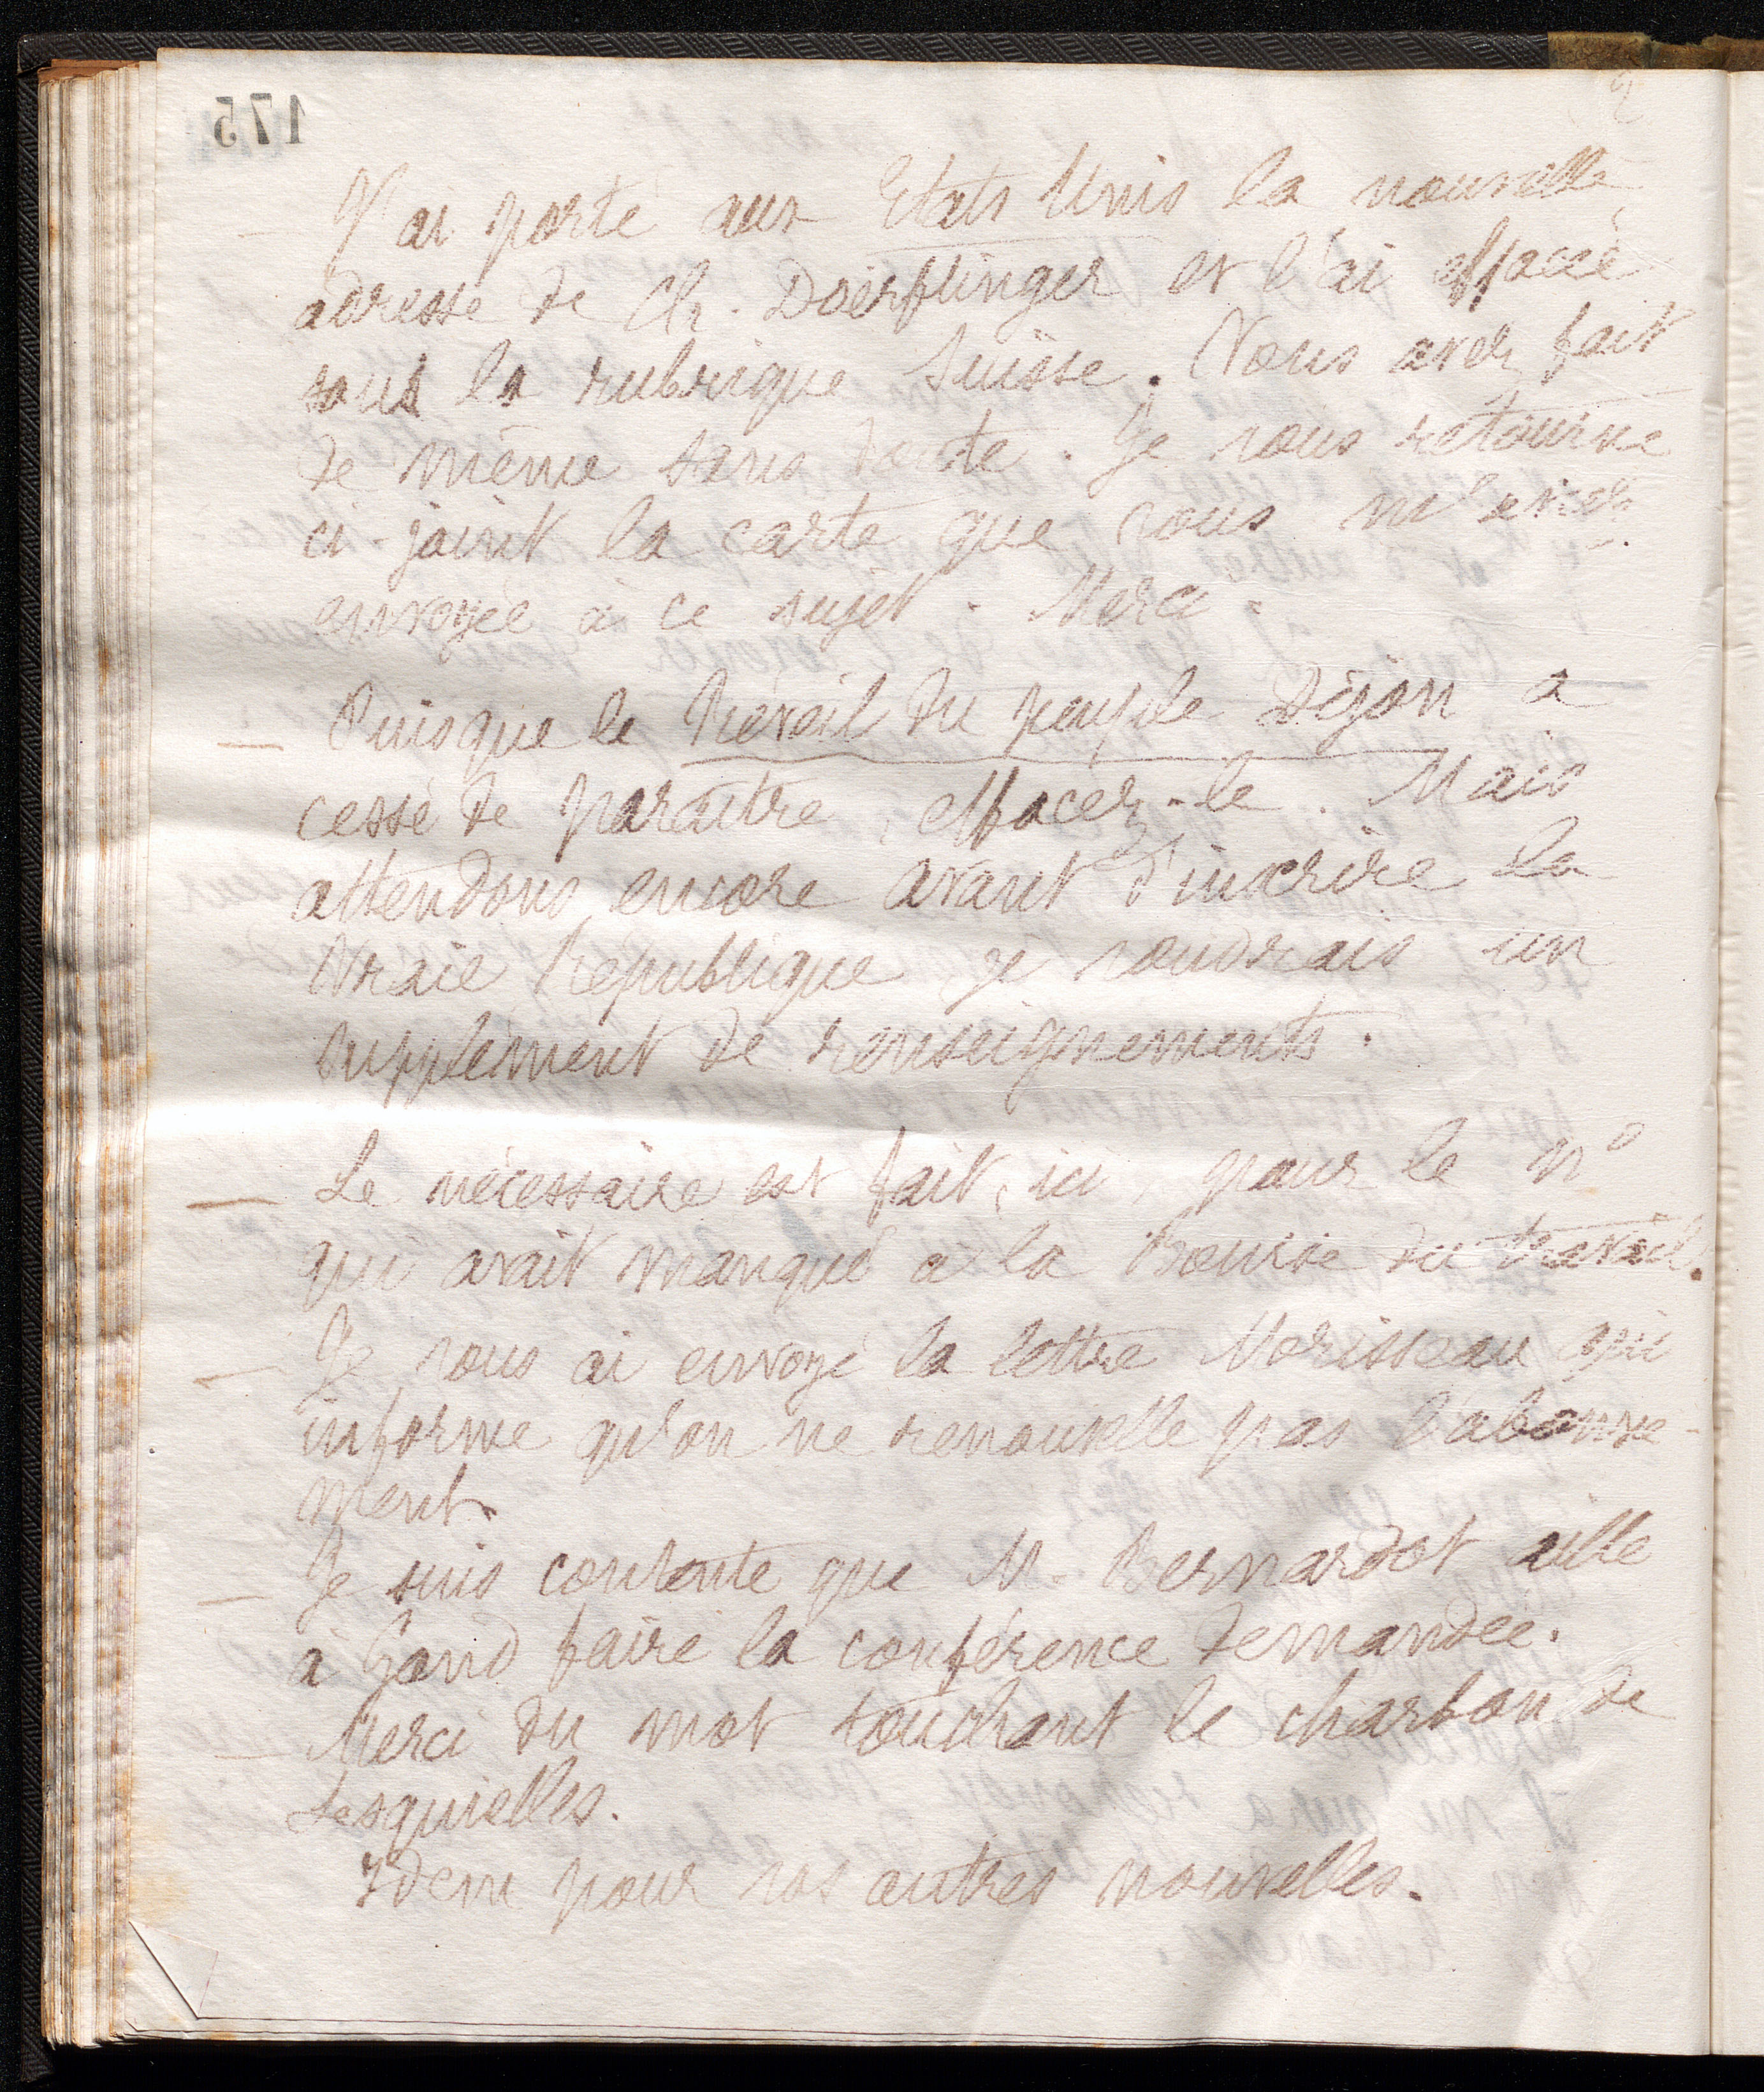 175
2
— J'ai porté aux Etats Unis la nouvelle
adresse de Ch. Doerflinger et l'ai effacée
sous la rubrique Suisse. Vous avez fait
de même sans doute. Je vous retourne
ci-joint la carte que vous m'avez
envoyée à ce sujet. Merci.
— Puisque le Réveil du peuple Dijon a
cessé de paraître, effacez-le. Mais
attendons encore avant d'inscrire la
Vraie République je voudrais un
supplément de renseignements.
— Le nécessaire est fait, ici, pour le no
qui avait manqué à la Bourse du travail.
— Je vous ai envoyé la lettre Morisseau qui
informe qu'on ne renouvelle pas l'abonne-
ment.
— Je suis contente que M. Bernardot aille
à Gand faire la conférence demandée.
— Merci du mot touchant le charbon de
Lesquielles.
Idem pour vos autres nouvelles.